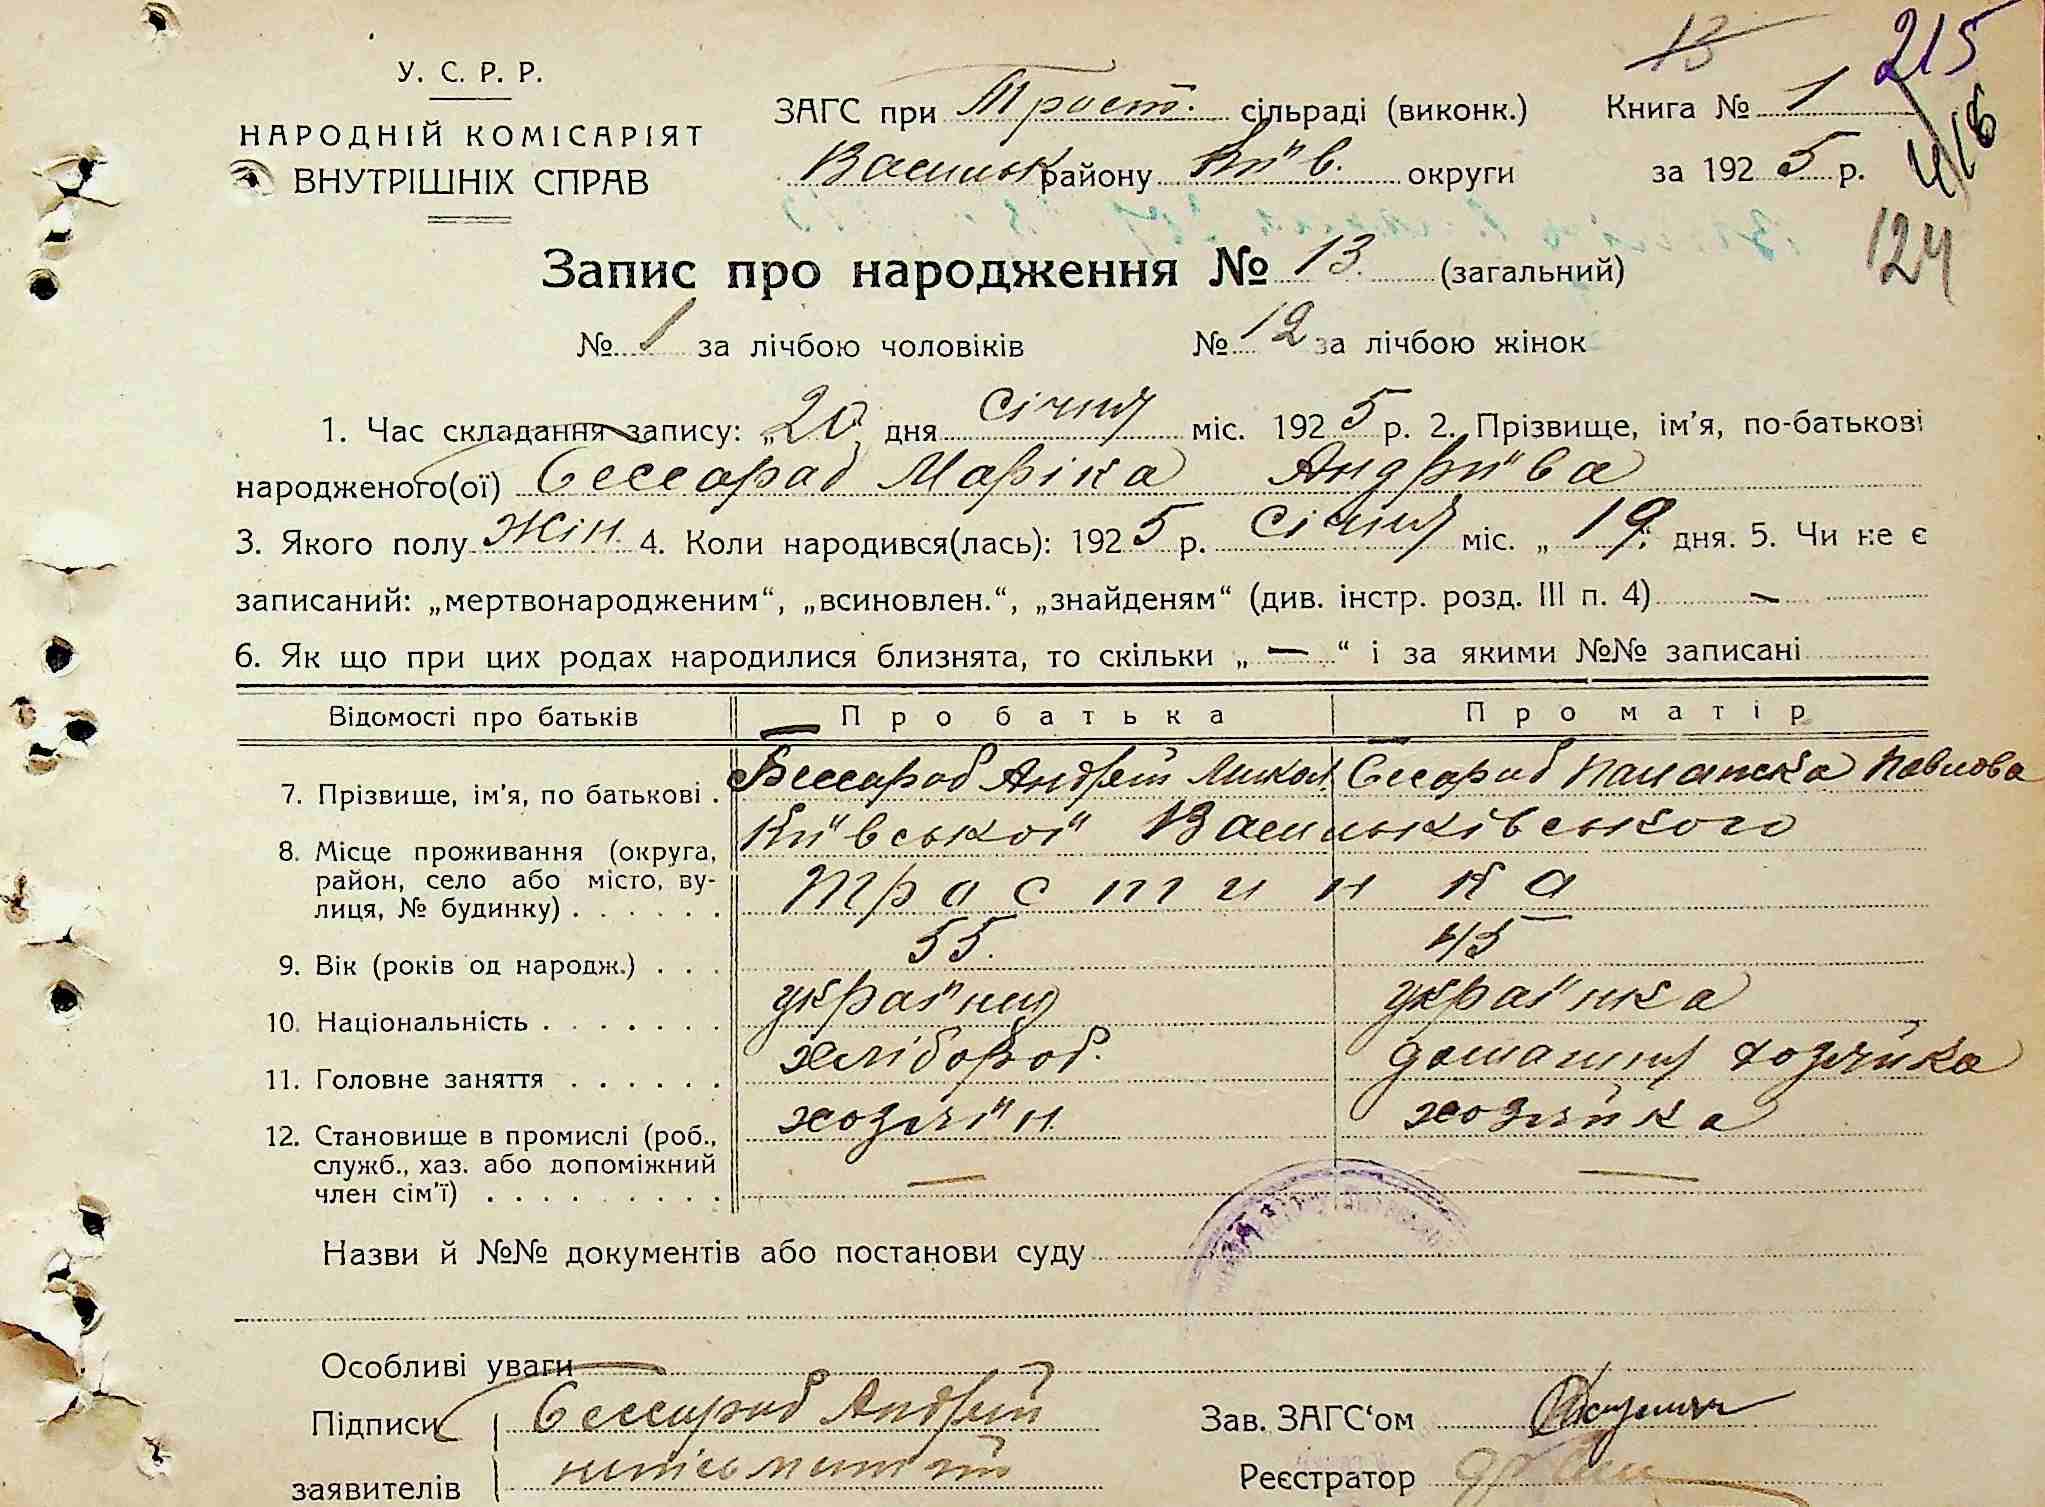 13
215
У. С. Р. Р.
ЗАГС при Трост. сільраді (виконк.) Книга № 1
416
НАРОДНІЙ КОМІСАРІЯТ
ВНУТРІШНІХ СПРАВ
Васильк району Київ. округи за 1925 р.
124
Запис про народження № 13. (загальний)
№ 1 за лічбою чоловіків № 12 за лічбою жінок
1. Час складання запису: „20 дня Січня міс. 1925 р. 2. Прізвище, ім'я, по-батькові
народженого(ої) Бессараб Маріка Андриїва
3. Якого полу Жін. 4. Коли народився(лась): 1925 р. Січня міс. „19" дня. 5. Чи не є
записаний: „мертвонародженим“, „всиновлен.“, „знайденям“ (див. інстр. розд. III п. 4) —
6. Як що при цих родах народилися близнята, то скільки „ — “ і за якими №№ записані
Відомості про батьків Про батька Про матір
7. Прізвище, ім'я, по батькові . Бессараб Андрій Микол. Бесараб Панаска Павлова
8. Місце проживання (округа, Київської Васильківського
район, село або місто, ву-
лиця, № будинку) . . . . . . Тростинка
9. Вік (років од народж.) . . . 55. 45
10. Національність . . . . . . . українц українка
11. Головне заняття . . . . . . хлібороб. домашня хозяйка
12. Становище в промислі (роб., хозяїн. хозяйка
служб., хаз. або допоміжний
член сім'ї) . . . . . . . . . — —
Назви й №№ документів або постанови суду
Особливі уваги
Підписи Бессараб Андрій Зав. ЗАГС‘ом
заявителів неписьменний Реєстратор